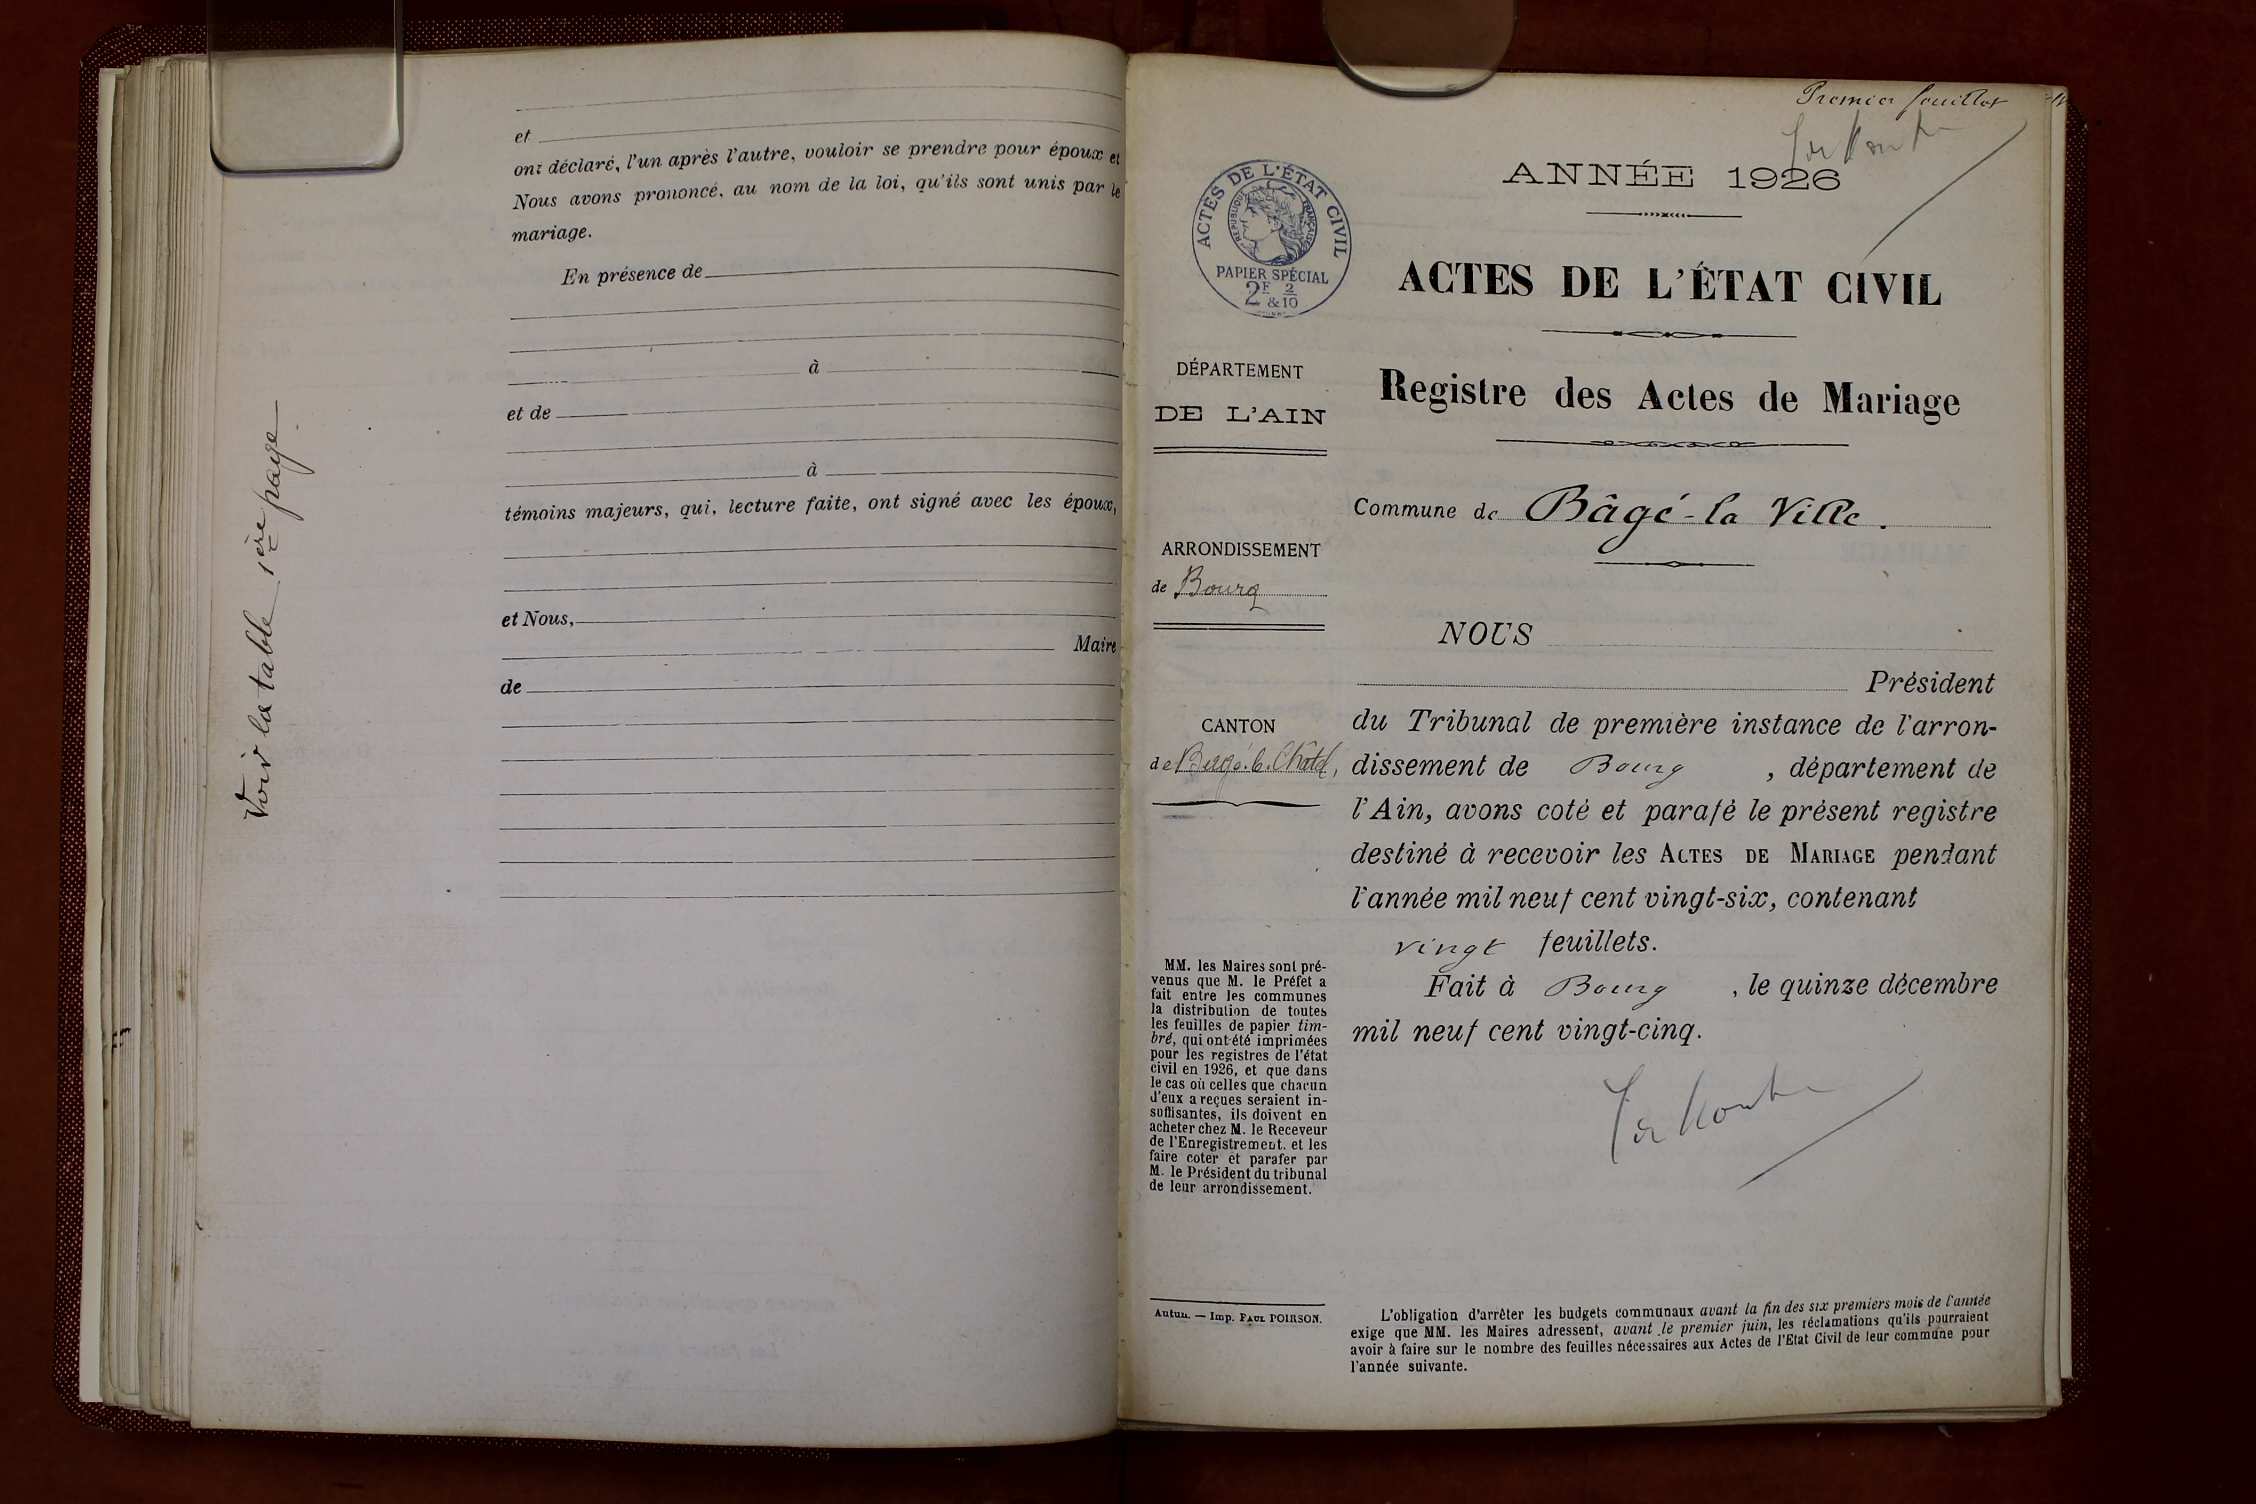 et
ont déclaré, l'un après l'autre, vouloir se prendre pour époux et
Nous avons prononcé, au nom de la loi, qu'ils sont unis par le
mariage.
En présence de
à
et de
à
témoins majeurs, qui, lecture faite, ont signé avec les époux,
et Nous,
Maire
de
Voir la table 1ère page
Premier feuillet
ANNÉE 1926
ACTES DE L'ÉTAT CIVIL
RÉPUBLIQUE FRANÇAISE
PAPIER SPÉCIAL
2F 2
& 10
ACTES DE L'ÉTAT CIVIL
Registre des Actes de Mariage
Commune de Bâgé-la Ville.
DÉPARTEMENT
DE L'AIN
ARRONDISSEMENT
de Bourg
CANTON
de Bâgé-le-Châtel,
MM. les Maires sont pré-
venus que M. le Préfet a
fait entre les communes
la distribution de toutes
les feuilles de papier tim-
bré, qui ont été imprimées
pour les registres de l'état
civil en 1926, et que dans
le cas où celles que chacun
d'eux a reçues seraient in-
suffisantes, ils doivent en
acheter chez M. le Receveur
de l'Enregistrement. et les
faire coter et parafer par
M. le Président du tribunal
de leur arrondissement.
Autun. — Imp. PAUL POIRSON.
NOUS
Président
du Tribunal de première instance de l'arron-
dissement de Bourg , département de
l'Ain, avons coté et parafé le présent registre
destiné à recevoir les ACTES DE MARIAGE pendant
l'année mil neuf cent vingt-six, contenant
vingt feuillets.
Fait à Bourg , le quinze décembre
mil neuf cent vingt-cinq.
L'obligation d'arrêter les budgets communaux avant la fin des six premiers mois de l'année
exige que MM. les Maires adressent, avant le premier juin, les réclamations qu'ils pourraient
avoir à faire sur le nombre des feuilles nécessaires aux Actes de l'Etat Civil de leur commune pour
l'année suivante.